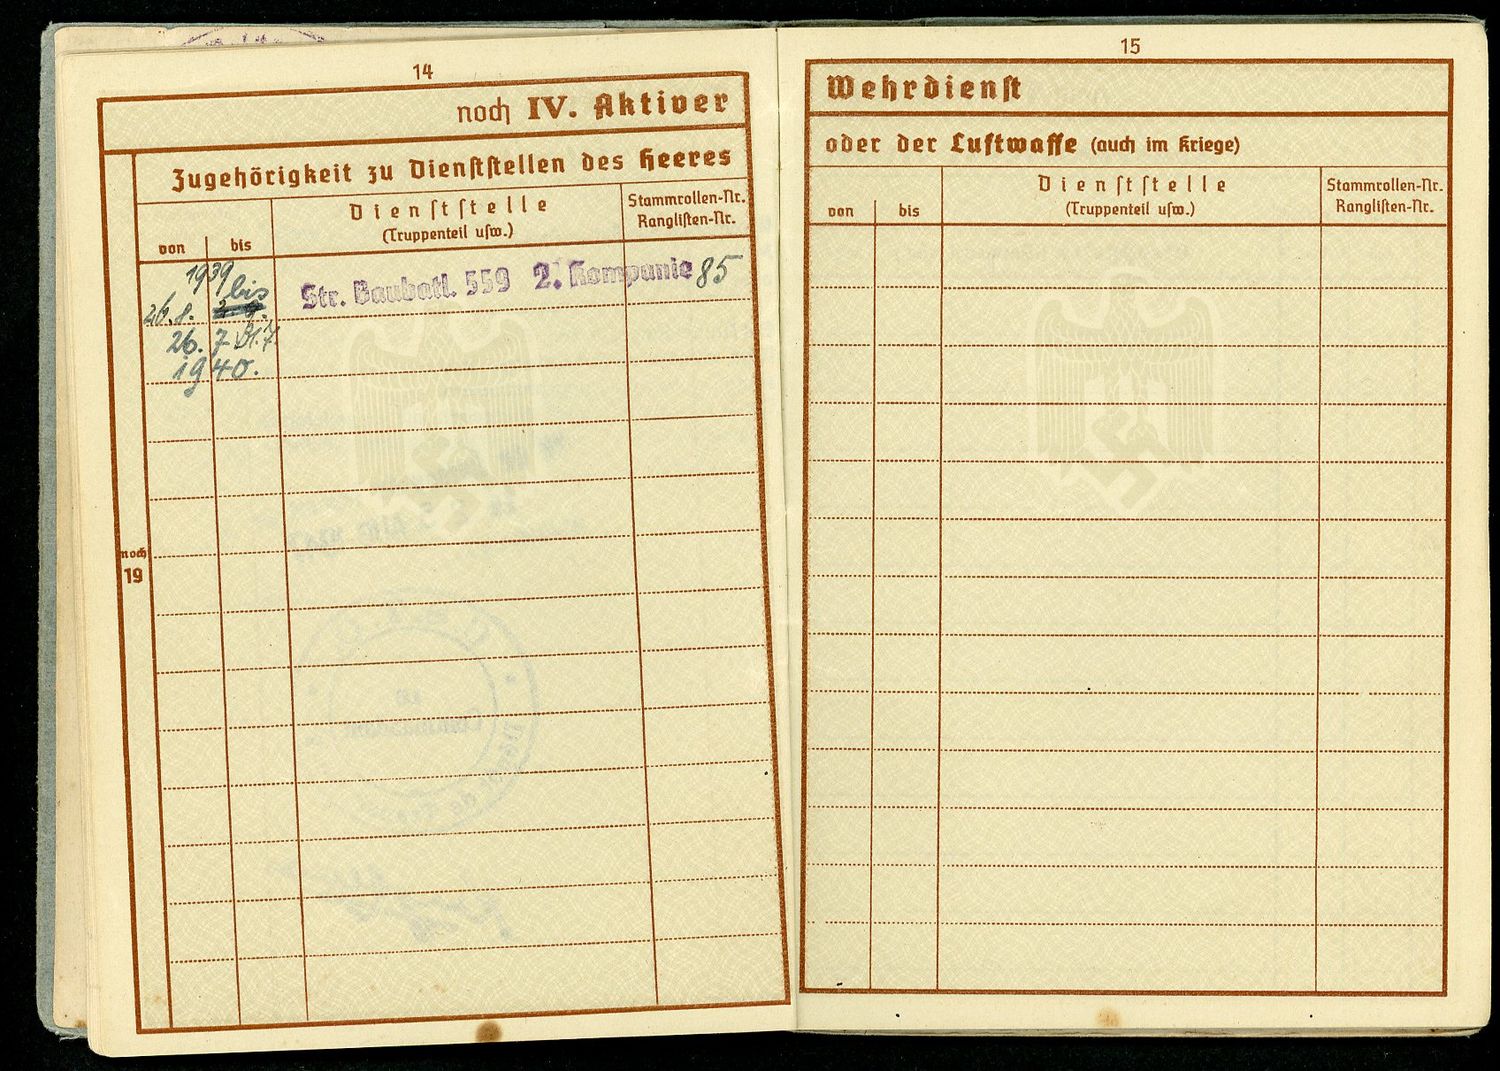 14
noch IV. Aktiver
Zugehörigkeit zu Dienststellen des Heeres
von
bis
Dienststelle
(Truppenteil usw.)
Stammrollen-Nr.
Ranglisten-Nr.
1939
bis
26.8.
Str. Baubatl. 559 2. Kompanie 85
26. 7
1940.
noch
19
15
Wehrdienst
oder der Luftwaffe (auch im Kriege)
von
bis
Dienststelle
(Truppenteil usw.)
Stammrollen-Nr.
Ranglisten-Nr.